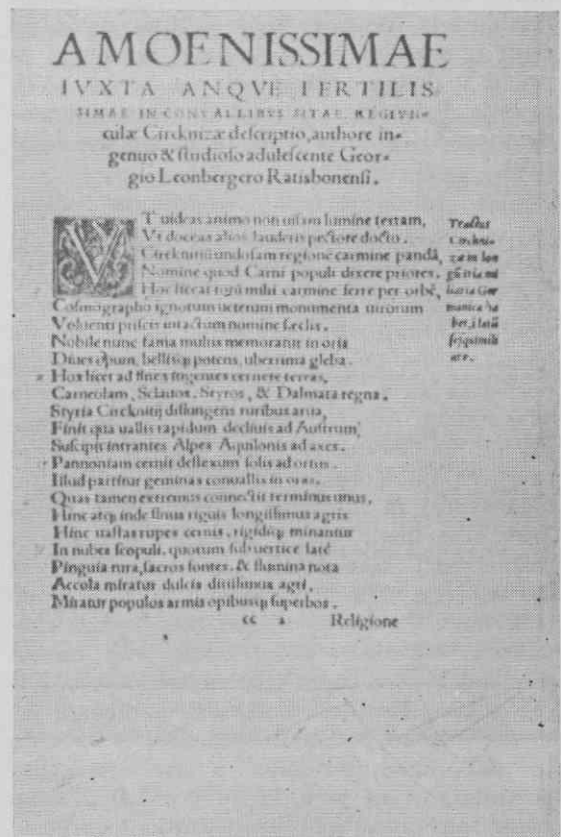 AMOENISSIMAE
IVXTA ANQVE FERTILIS
SIMAE IN CONVALLIBVS SITAE, REGIVN-
culæ Circknizæ descriptio, authore in-
genuo & studioso adulescente Geor-
gio Leonbergero Ratisbonensi.
VT uideas animo non uisam lumine terram,
Vt doceas alios lauderis pectore docto.
Circknitiū undosam regione carmine pandā,
Nomine quod Carni populi dixere priores.
Hoc liceat mihi carmine ferre per orbē,
Cosmographo ignotum ueterum monumenta uirorum
Voluenti priscis intactum nomine sæclis.
Nobile nunc fama multus memoratur in oris
Diues opum, bellisq; potens, uberrima gleba.
Hoc licet ad fines ingentes cernere terras,
Carneolam, Sclauos, Styros, & Dalmata regna.
Styria Circknitij disiungens ruribus arua,
Finit qua uallis rapidum decliuis ad Austrum,
Suscipit intrantes Alpes Aquilonis ad axes.
Pannoniam cernit deflexum solis ad ortus.
Illud partitur geminas conuallis in oras.
Quas tamen extremus connectit terminus unus,
Hinc atq; inde sinus riguis longissimus agris
Hinc uastas rupes cernis, rigidiq; minantur
In nubes scopuli, quorum sub uertice latè
Pinguia rura, sacros fontes, & flumina nota
Accola miratur dulcis ditissimus agri,
Miratur populos armis opibusq; superbos.
cc 2 Religione
Tractus
Circkni-
zæ in lon
Ger
manica ha
bet, i latū
sesquimili
are.